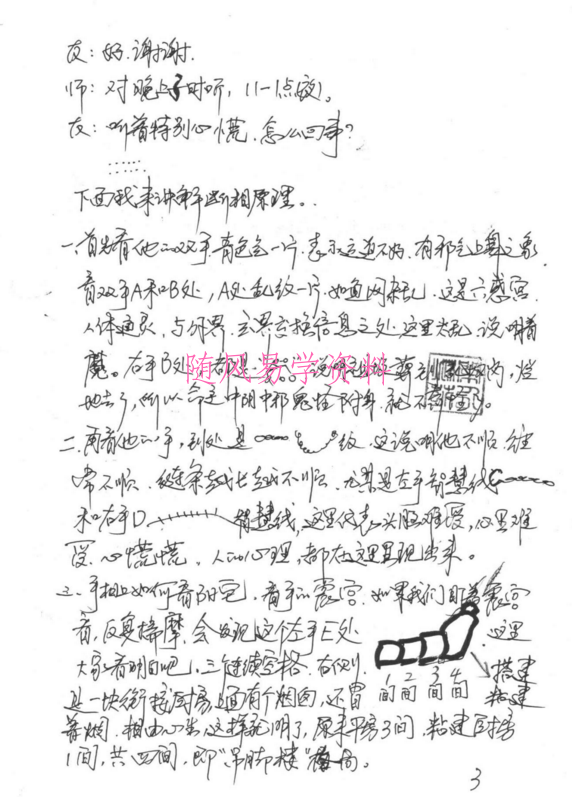 友：好.谢谢.
师：对晚上子时听，11-1点钟。
友：听着特别心慌.怎么回事?
......
下面我来讲解断相原理。
一、首先看他的双手.青色色一片.表示运道不好.有邪气上身之象
看双手A和B处，A处乱纹一片.如鱼网杂乱.这是六感宫.
人体通灵，与外界.玄界交换信息之处.这里太乱.说明着
魔。右手B处
随风易学资料
地去了，所以命运中阴中邪鬼怪附身.就不
二.再看他的手，到处是 纹.这说明他不顺.经
常不顺.链条越长越不顺.尤其是左手智慧线
和右手D 智慧线，这里代表头脑难受，心里难
受.心慌慌.人的心理，都在这里显现出来。
三、手相上如何看阳宅.看手的震宫.如果我们盯着震宫
看，反复揣摩.会发现这个左手E处
这里
大家看明白吧.三个连续空格.右侧
搭建
粘建
1间 2间 3间 4间
是一块衔接厨房.上面有个烟囱，还冒
着烟.相由心生.这样说明了，原来平房3间，粘建厨房
1间，共四间，即"吊脚楼"格局。
3